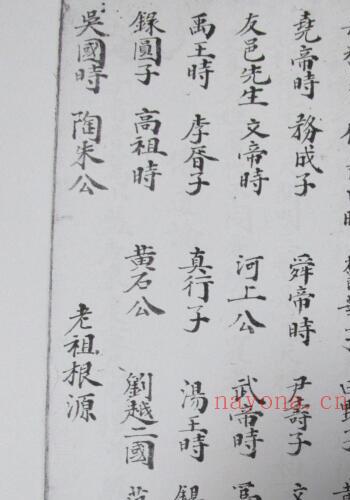 堯帝時 務成子 舜帝時 尹壽子
友邑先生 文帝時 河上公 武帝時
禹王時 李胥子 真行子 湯王時 錫
錄圓子 高祖時 黄石公 劉越二國
吳國時 陶朱公
老祖根源
nayona.cn